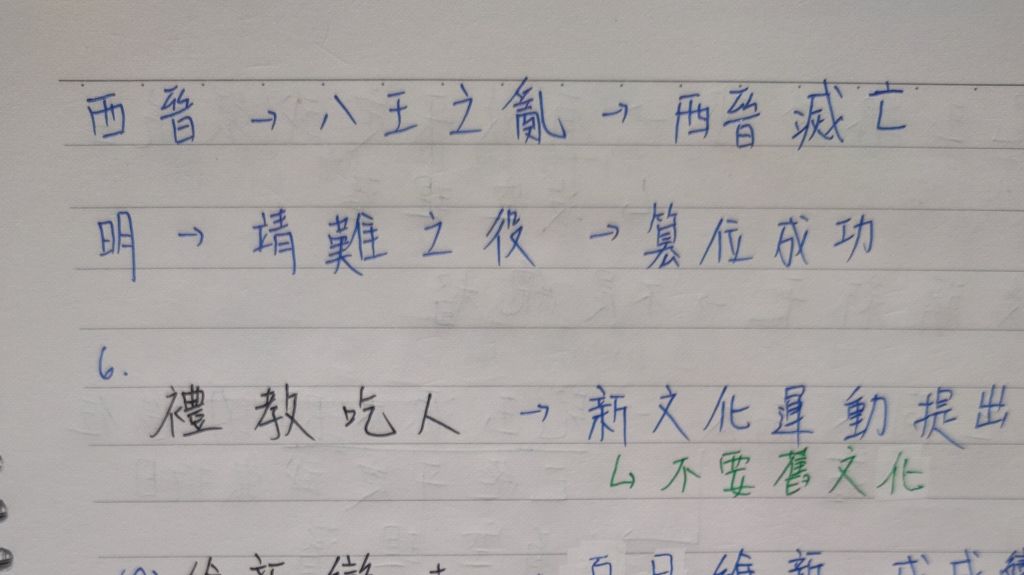 西晉→八王之亂→西晉滅亡
明→靖難之役→篡位成功
6.
禮教吃人→新文化運動提出
↳不要舊文化
維新